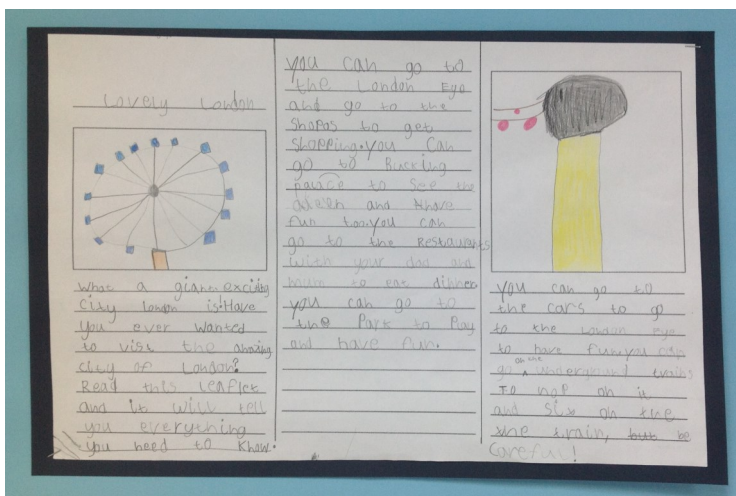 Lovely London
What a giant exciting
city London is! Have
you ever wanted
to visit the amazing
city of London?
Read this leaflet
and it will tell
you everything
you need to know.
you can go to
the London Eye
and go to the
shopas to get
shopping. you can
go to Bucking
to see the
and have
fun too. you can
go to the Restaurants
with your dad and
mum to eat dinner
you can go to
the Park to Play
and have fun.
you can go to
the cars to go
to the London Eye
to have fun. you can
go on the underground trains
To hop on it
and sit on the
the train, be
Careful!